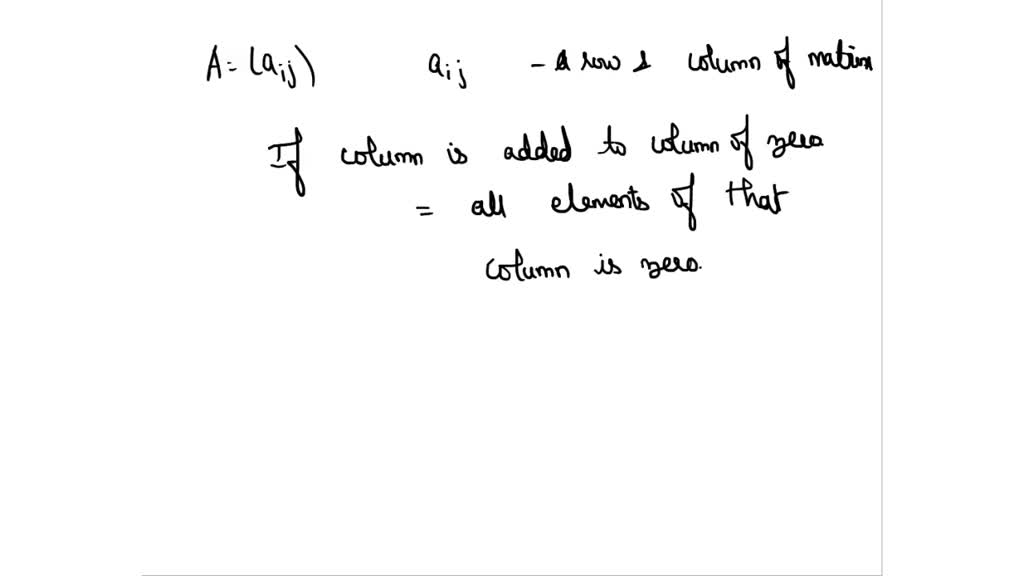 A = (aij) aij - a row & column of matrix
If column is added to column of zero
= all elements of that
column is zero.